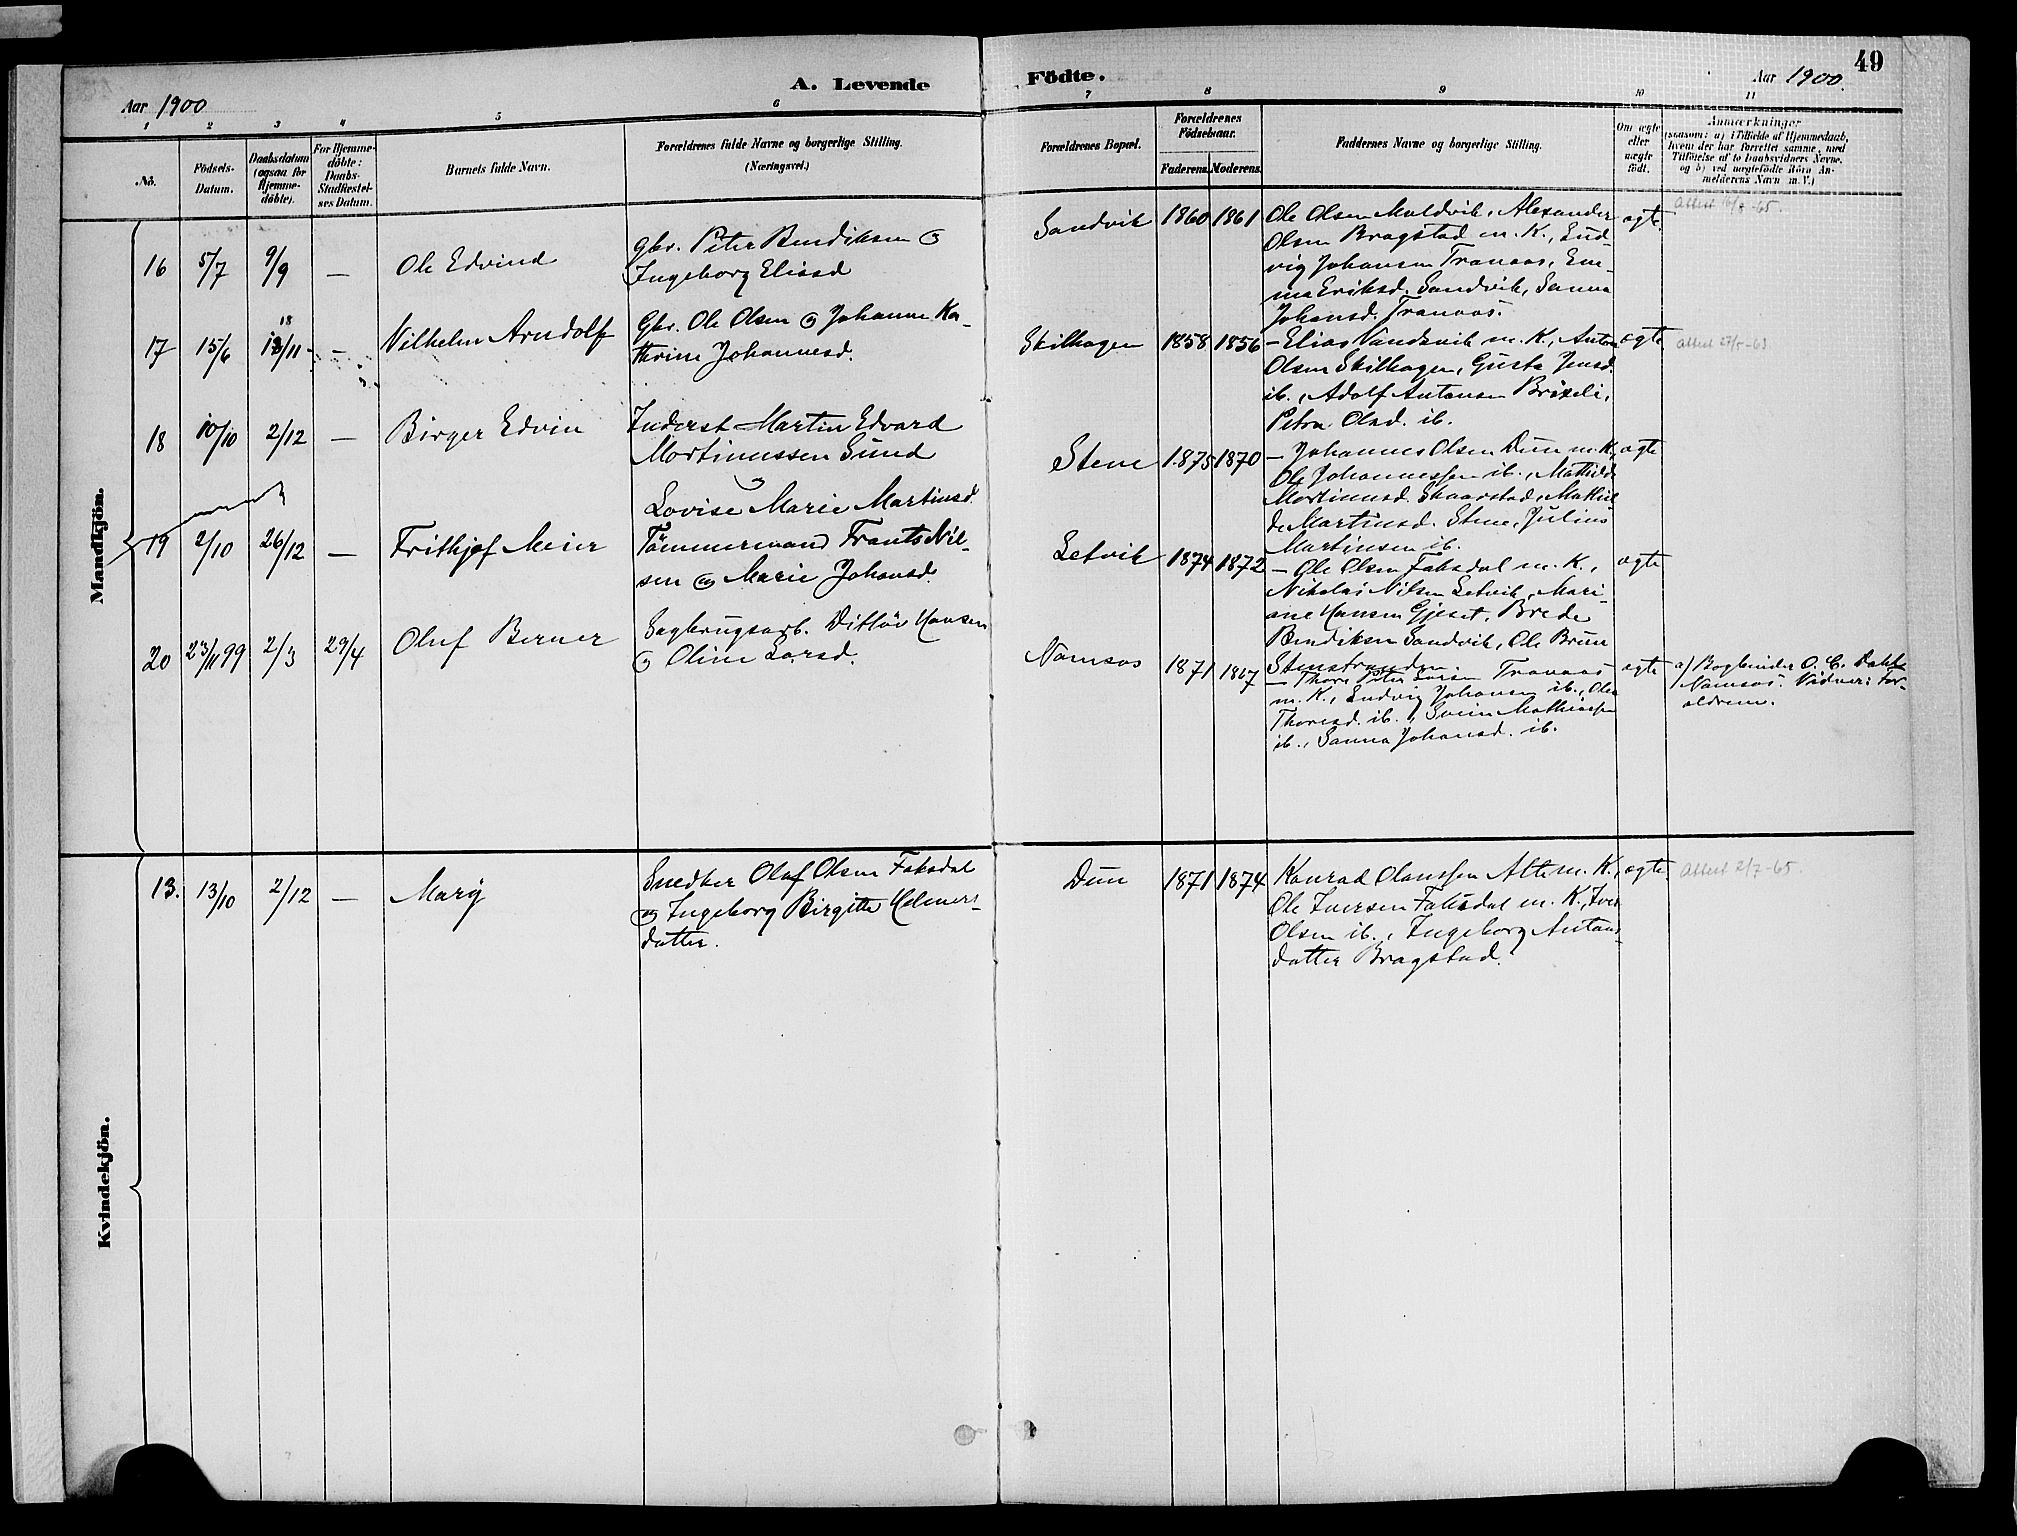 49
A. Levende Födte.
Aar 1900
Aar 1900.
1 2 3 4 5 6 7 8 9 10 11
No.
Födsels-Datum.
Daabsdatum (ogsaa for Hjemme-döbte).
For Hjemme-döbte: Daabs-Stadfæstel-ses Datum.
Barnets fulde Navn.
Forældrenes fulde Navne og borgerlige Stilling.
(Næringsvei.)
Forældrenes Bopæl.
Forældrenes Födselsaar.
Faderens. Moderens.
Faddernes Navne og borgerlige Stilling.
Om ægte eller uægte födt.
Anmærkninger
(saasom: a) i Tilfælde af Hjemmedaab,
hvem der har forrettet samme, med
Tilföielse af to Daabsvidners Navne,
og b) ved uægtefödte Börn An-
melderens Navn m. V.)
Mandkjön.
16 5/7 9/9 — Ole Edvind
Gbr. Peter Bendiksen og
Ingeborg Elisad
Sandvik 1860 1861
Ole Olsen Maldvik, Alexander
Olsen Bragstad m. K., Lud-
vig Johansen Tranaas, Em-
ma Eriksd. Sandvik, Sanna
Johansd. Tranaas.
ægte
Attest 16/8-65.
17 15/6 18/11 — Vilhelm Arndolf
Gbr. Ole Olsen og Johanna Ka-
thrine Johannesd.
Skilhagen 1858 1856
— Elias Vandsvik m. K., Anton
Olsen Skilhagen, Gusta Jensd.
ib., Adolf Antonsen Bröreli,
Petra Olsd. ib.
ægte
Attest 27/5-63
18 10/10 2/12 — Birger Edvin
Inderst Martin Edvard
Martinussen Sund
og
Lovise Marie Martinsd.
Stene 1875 1870
— Johannes Olsen Dun m. K.,
Ole Johannessen ib., Mathilde
Martinusd. Skaarstad, Mathil-
de Martinsd. Stene, Julius
Martinsen ib.
ægte
19 2/10 26/12 — Frithjof Meier
Tömmermand Frants Nil-
sen og Marie Johansd.
Setvik 1874 1872
— Ole Olsen Faksdal m. K.,
Nikolai Nilsen Setvik, Mari-
ane Hansen Gjeset, Brede
Bendiksen Sandvik, Ole Brun
Stenstranden.
ægte
20 23/11 99 2/3 29/4 Oluf Berner
Sagbrugsarb. Ditlöv Hansen
og Oline Larsd.
Namsos 1871 1867
— Thore Peter Tranaas
m. K., Ludvig Johansen ib., Olea
Thoresd. ib., Svein Mathiasen
ib., Sanna Johansd. ib.
ægte
a) Bogbinder O. C. Dahl
Namsos. Vidner: For-
ældrene.
Kvindekjön.
13. 13/10 2/12 — Mary
Snedker Olaf Olsen Faksdal
og Ingeborg Birgitte Helmers-
datter.
Dun 1871 1874
Konrad Olaussen Alte m. K.,
Ole Iversen Faksdal m. K., Iver
Olsen ib., Ingeborg Antons-
datter Bragstad.
ægte
Attest 2/7-65.